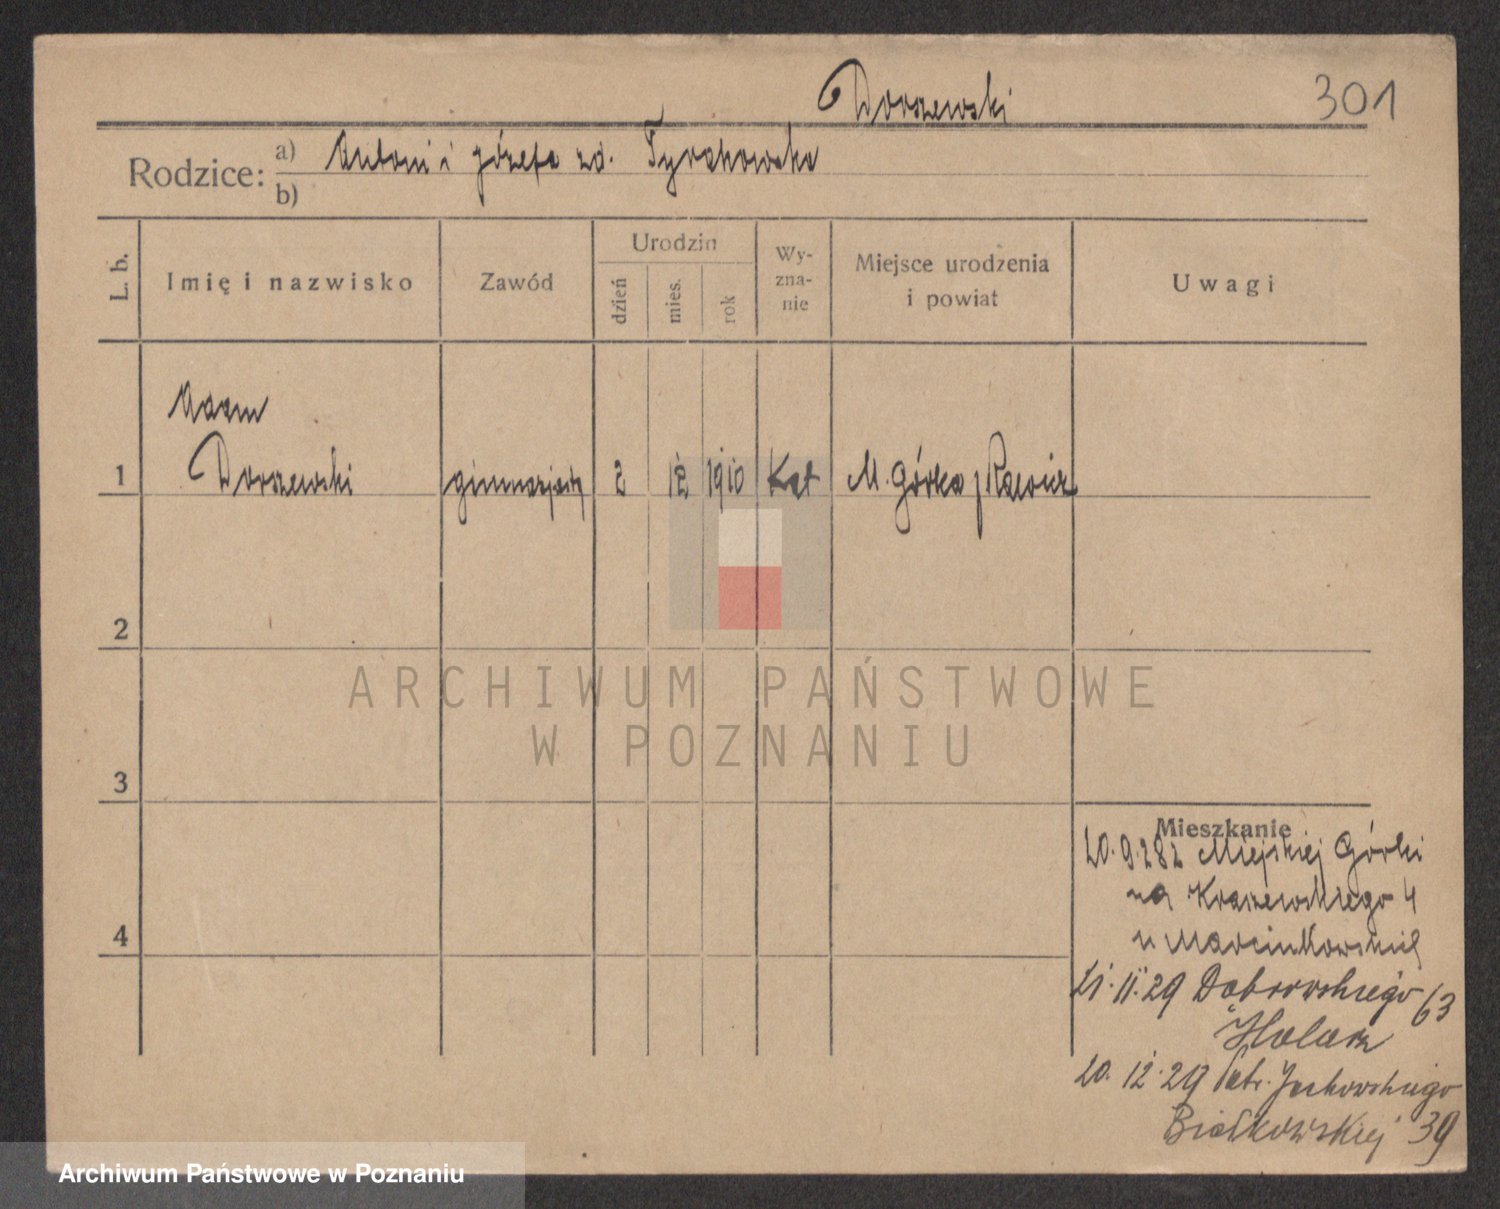 Dorszewski
301
Rodzice: a) Antoni i Józefa zd. Tyrakowska
b)
L. b. Imię i nazwisko Zawód Urodzin dzień mies. rok Wyznanie Miejsce urodzenia i powiat Uwagi
Adam
1 Dorszewski gimnazjasta 2 12 1910 Kat M. Górka, Rawicz
2
ARCHIWUM PAŃSTWOWE
W POZNANIU
3
4
Mieszkanie
20.9.28 z Miejskiej Górki
na Kraszewskiego 4
u Marcinkowskiej
21.11.29 Dabrowskiego 63
20.12.29 Patr. Jackowskiego
Białkowskiej 39
Archiwum Państwowe w Poznaniu